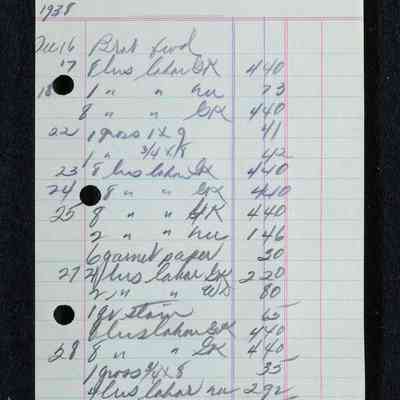 1938
Dec 16 Brot fwd
17 8 hrs labor GK 440
18 1 " " nu 73
8 " " GK 440
22 1 gross 1 x 9 41
1 " 3/4 x 8 42
23 8 hrs labor GK 440
24 8 " " GK 440
25 8 " " GK 440
2 " " nu 146
6 garnet paper 30
27 4 hrs labor GK 220
2 " " WS 80
1 qt stain 65
8 hrs labor GK 440
28 8 " " GK 440
1 gross 3/4 x 8 35
4 hrs labor nu 292